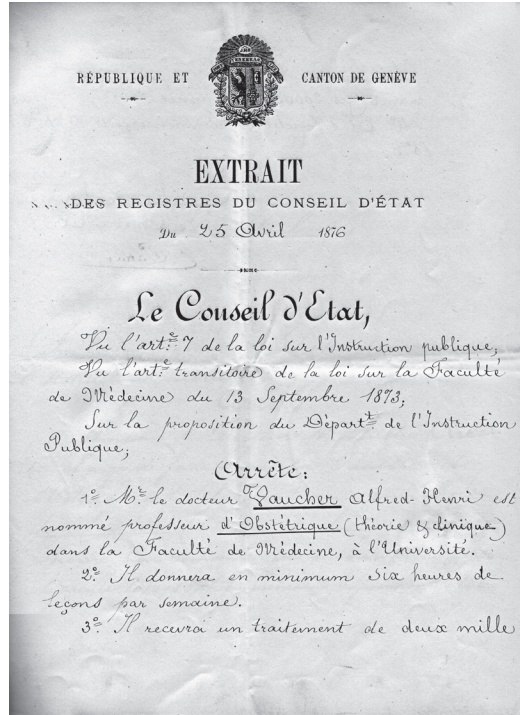 RÉPUBLIQUE ET CANTON DE GENÈVE
EXTRAIT
DES REGISTRES DU CONSEIL D'ÉTAT
Du 25 Avril 1876
Le Conseil d'Etat,
Vu l'art.e 7 de la loi sur l'Instruction publique;
Vu l'art.e transitoire de la loi sur la Faculté
de Médecine du 13 Septembre 1873;
Sur la proposition du Départ.t de l'Instruction
Publique;
Arrête:
1o. Mr. le docteur Vaucher Alfred-Henri est
nommé professeur d'Obstétrique (théorie & clinique)
dans la Faculté de Médecine, à l'Université.
2o. Il donnera en minimum six heures de
leçons par semaine.
3o. Il recevra un traitement de deux mille